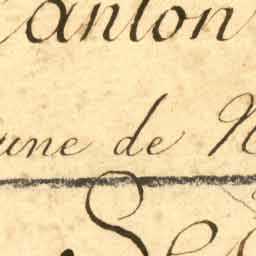 anton
une de N